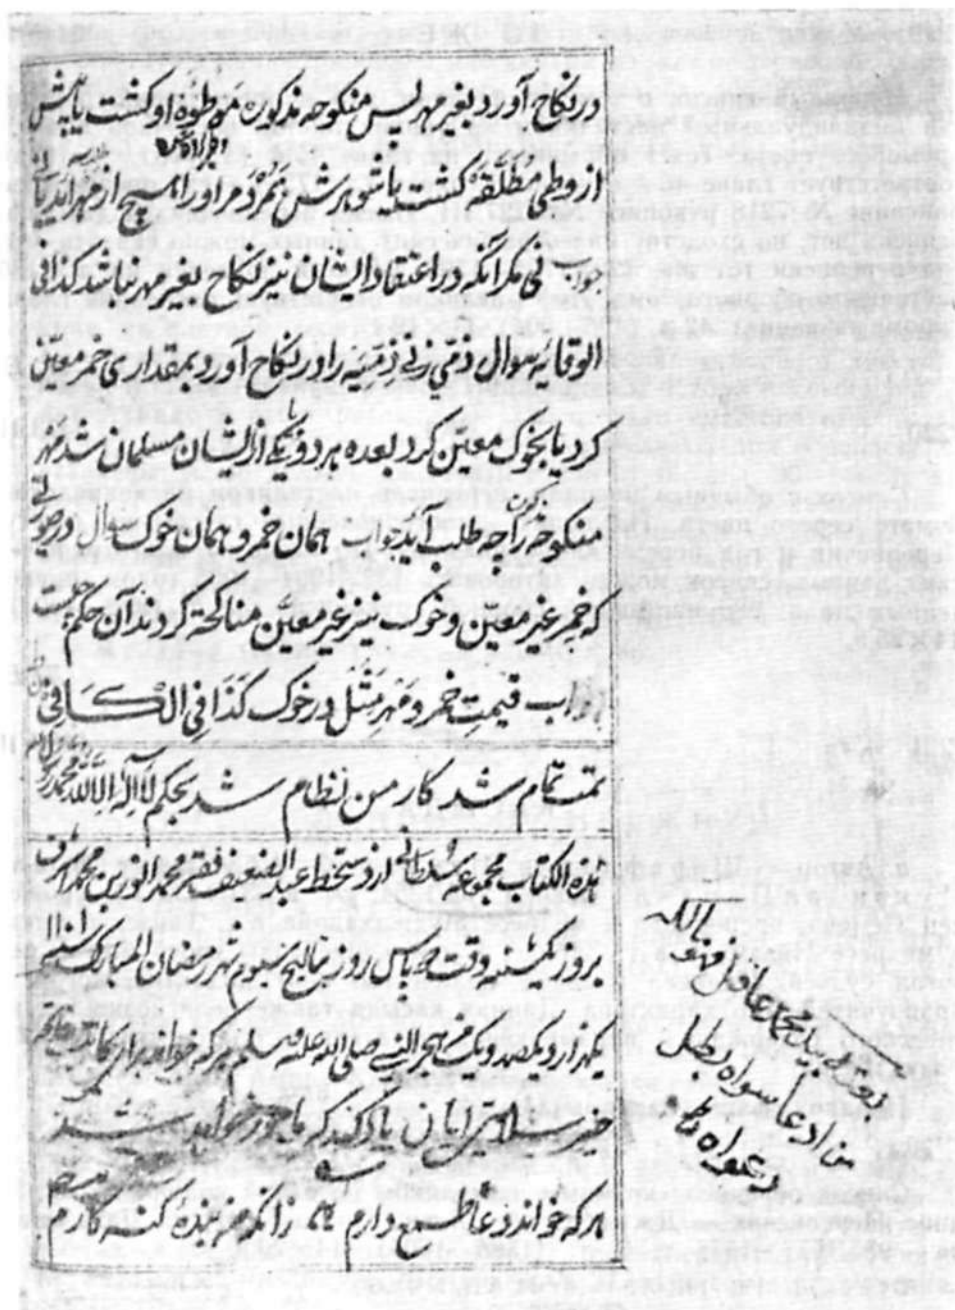 در نکاح آورد بغیر مهر پس منکوحه مذکوره موطوءه او گشت یا پیش
از وطی مطلقه گشت یا شوهرش بمرد مر او را هیچ از مهر آید یا نی
جواب نی مگر آنکه در اعتقاد ایشان نیز نکاح بغیر مهر نباشد کذا فی
الوقایه سوال ذمی زنی ذمیه را در نکاح آورد بمقداری خمر معین
کرد یا بخوک معین کرد بعده هر دو یا یکی از ایشان مسلمان شد مهر
منکوحه را چه طلب آید جواب همان خمر و همان خوک سوال در صورتی
که خمر غیر معین و خوک نیز غیر معین مناکحة کردند آن حکم چیست
جواب قیمت خمر و مهر مثل در خوک کذا فی الکافی
تمت تمام شد کار من نظام شد بحکم لا اله الا الله محمد رسول الله
هذه الکتاب مجموعه سلطانی از دستخط عبد الضعیف فقیر محمد
بروز یکشنبه وقت پاس روز بتاریخ شهر رمضان المبارک سنه
یکهزار و یکصد و یک هجر النبی صلی الله علیه وسلم هر که خواند
خیر یاد کند که ماجور خواهد شد
هر که خواند دعا طمع دارم زانکه من بنده گنه کارم
بالله
بنده محمد عادل
من ادعا سواه بطل
دعواه